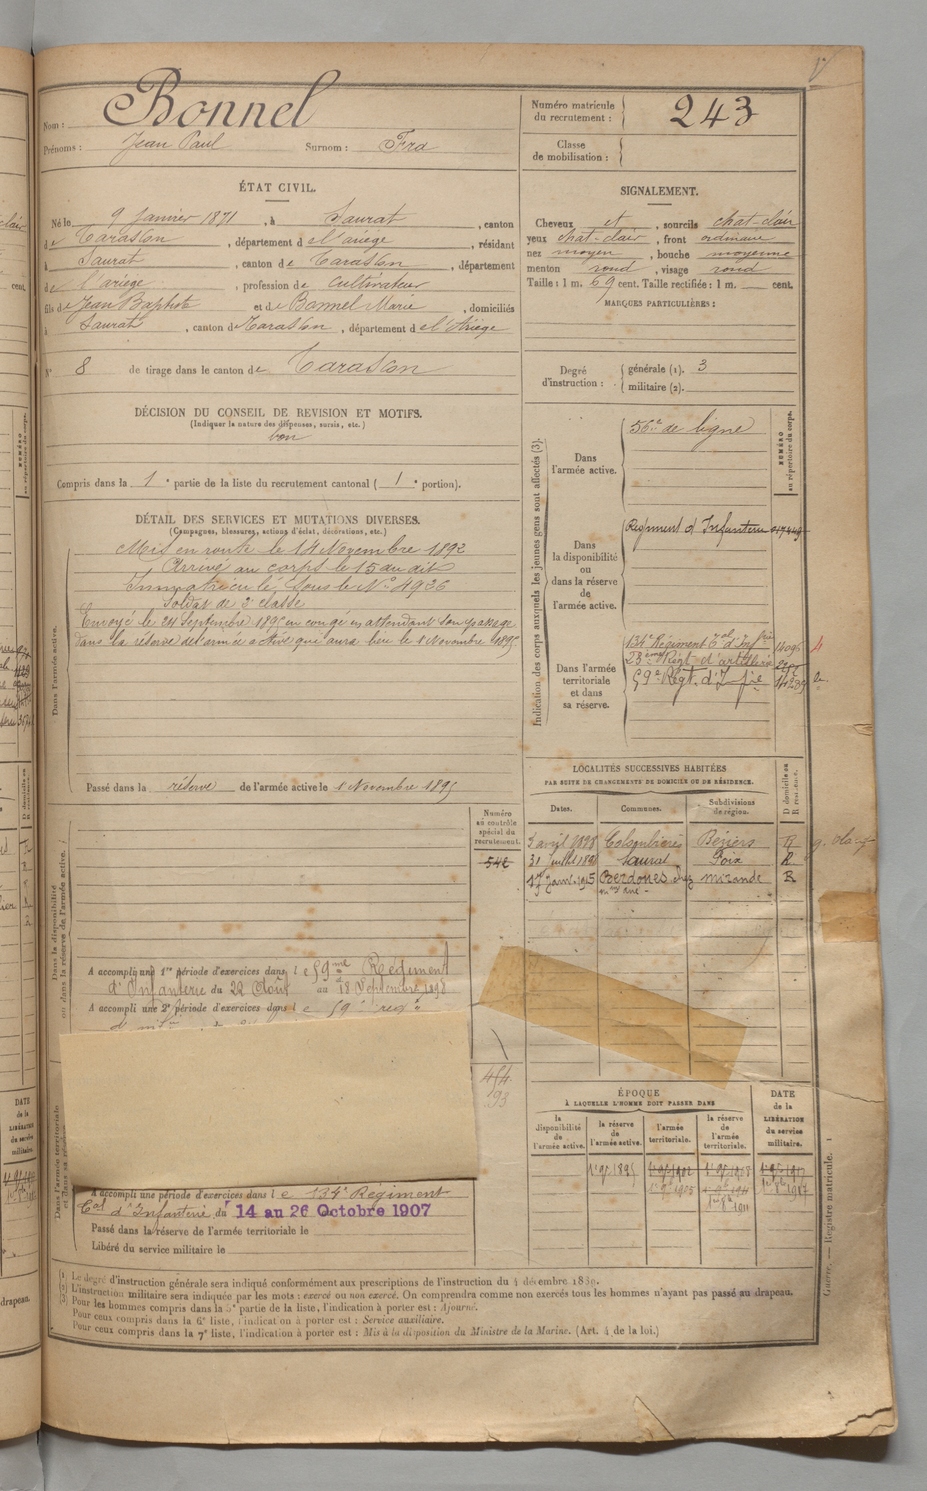 Nom : Bonnel
Prénoms : Jean Paul Surnom : Fra
Numéro matricule du recrutement : 243
Classe de mobilisation :
ÉTAT CIVIL.
Né le 9 Janvier 1871, à Saurat, canton
de Tarascon, département de l'ariége, résidant
à Saurat, canton de Tarascon, département
de l'ariége, profession de Cultivateur
fils de Jean Baptiste et de Bonnel Marie, domiciliés
à Saurat, canton de Tarascon, département de l'Ariége
N° 8 de tirage dans le canton de Tarascon
SIGNALEMENT.
Cheveux et, sourcils chat-clair
yeux chat-clair, front ordinaire
nez moyen, bouche moyenne
menton rond, visage rond
Taille : 1 m. 69 cent. Taille rectifiée : 1 m. cent.
MARQUES PARTICULIÈRES :
Degré d'instruction : générale (1). 3
militaire (2).
DÉCISION DU CONSEIL DE REVISION ET MOTIFS.
(Indiquer la nature des dispenses, sursis, etc.)
bon
Compris dans la 1e partie de la liste du recrutement cantonal (1e portion).
DÉTAIL DES SERVICES ET MUTATIONS DIVERSES.
(Campagnes, blessures, actions d'éclat, décorations, etc.)
Dans l'armée active.
Mis en route le 14 Novembre 1892
Arrivé au corps le 15 au dit
Immatriculé sous le N° 4936
Soldat de 2e classe
Envoyé le 24 Septembre 1895 en congé en attendant son passage
dans la réserve de l'armée active qui aura lieu le 1 Novembre 1895
Passé dans la réserve de l'armée active le 1 Novembre 1895
Indication des corps auxquels les jeunes gens sont affectés (3).
NUMÉRO au répertoire du corps.
Dans l'armée active.
56e de ligne
Dans la disponibilité ou dans la réserve de l'armée active.
Regiment d'Infanterie
Dans l'armée territoriale et dans sa réserve.
134e Régiment Cal d'Inf
23ème Régt d'artillerie
59e Régt. d'Infie
LOCALITÉS SUCCESSIVES HABITÉES
PAR SUITE DE CHANGEMENTS DE DOMICILE OU DE RÉSIDENCE.
Dates. Communes. Subdivisions de région. D domicile ou R résidence.
3 avril 1898 Colombieres Béziers R
31 juillet 1898 Saurat Foix R
17 janv. 1915 Berdoues Mirande R
Dans la disponibilité ou dans la réserve de l'armée active.
Numéro au contrôle spécial du recrutement.
542
A accompli une 1re période d'exercices dans le 59me Regiment
d'Infanterie du 22 Août au 18 Septembre 1898
A accompli une 2e période d'exercices dans le 59e reg
454
93
Dans l'armée territoriale
A accompli une période d'exercices dans le 134e Regiment
Cal d'Infanterie du 14 au 26 Octobre 1907
Passé dans la réserve de l'armée territoriale le
Libéré du service militaire le
ÉPOQUE
À LAQUELLE L'HOMME DOIT PASSER DANS
la disponibilité de l'armée active. la réserve de l'armée active. l'armée territoriale. la réserve de l'armée territoriale.
DATE de la LIBÉRATION du service militaire.
(1) Le degré d'instruction générale sera indiqué conformément aux prescriptions de l'instruction du 4 décembre 1889.
(2) L'instruction militaire sera indiquée par les mots : exercé ou non exercé. On comprendra comme non exercés tous les hommes n'ayant pas passé au drapeau.
(3) Pour les hommes compris dans la 5e partie de la liste, l'indication à porter est : Ajourné.
Pour ceux compris dans la 6e liste, l'indication à porter est : Service auxiliaire.
Pour ceux compris dans la 7e liste, l'indication à porter est : Mis à la disposition du Ministre de la Marine. (Art. 4 de la loi.)
Guerre. — Registre matricule. 1